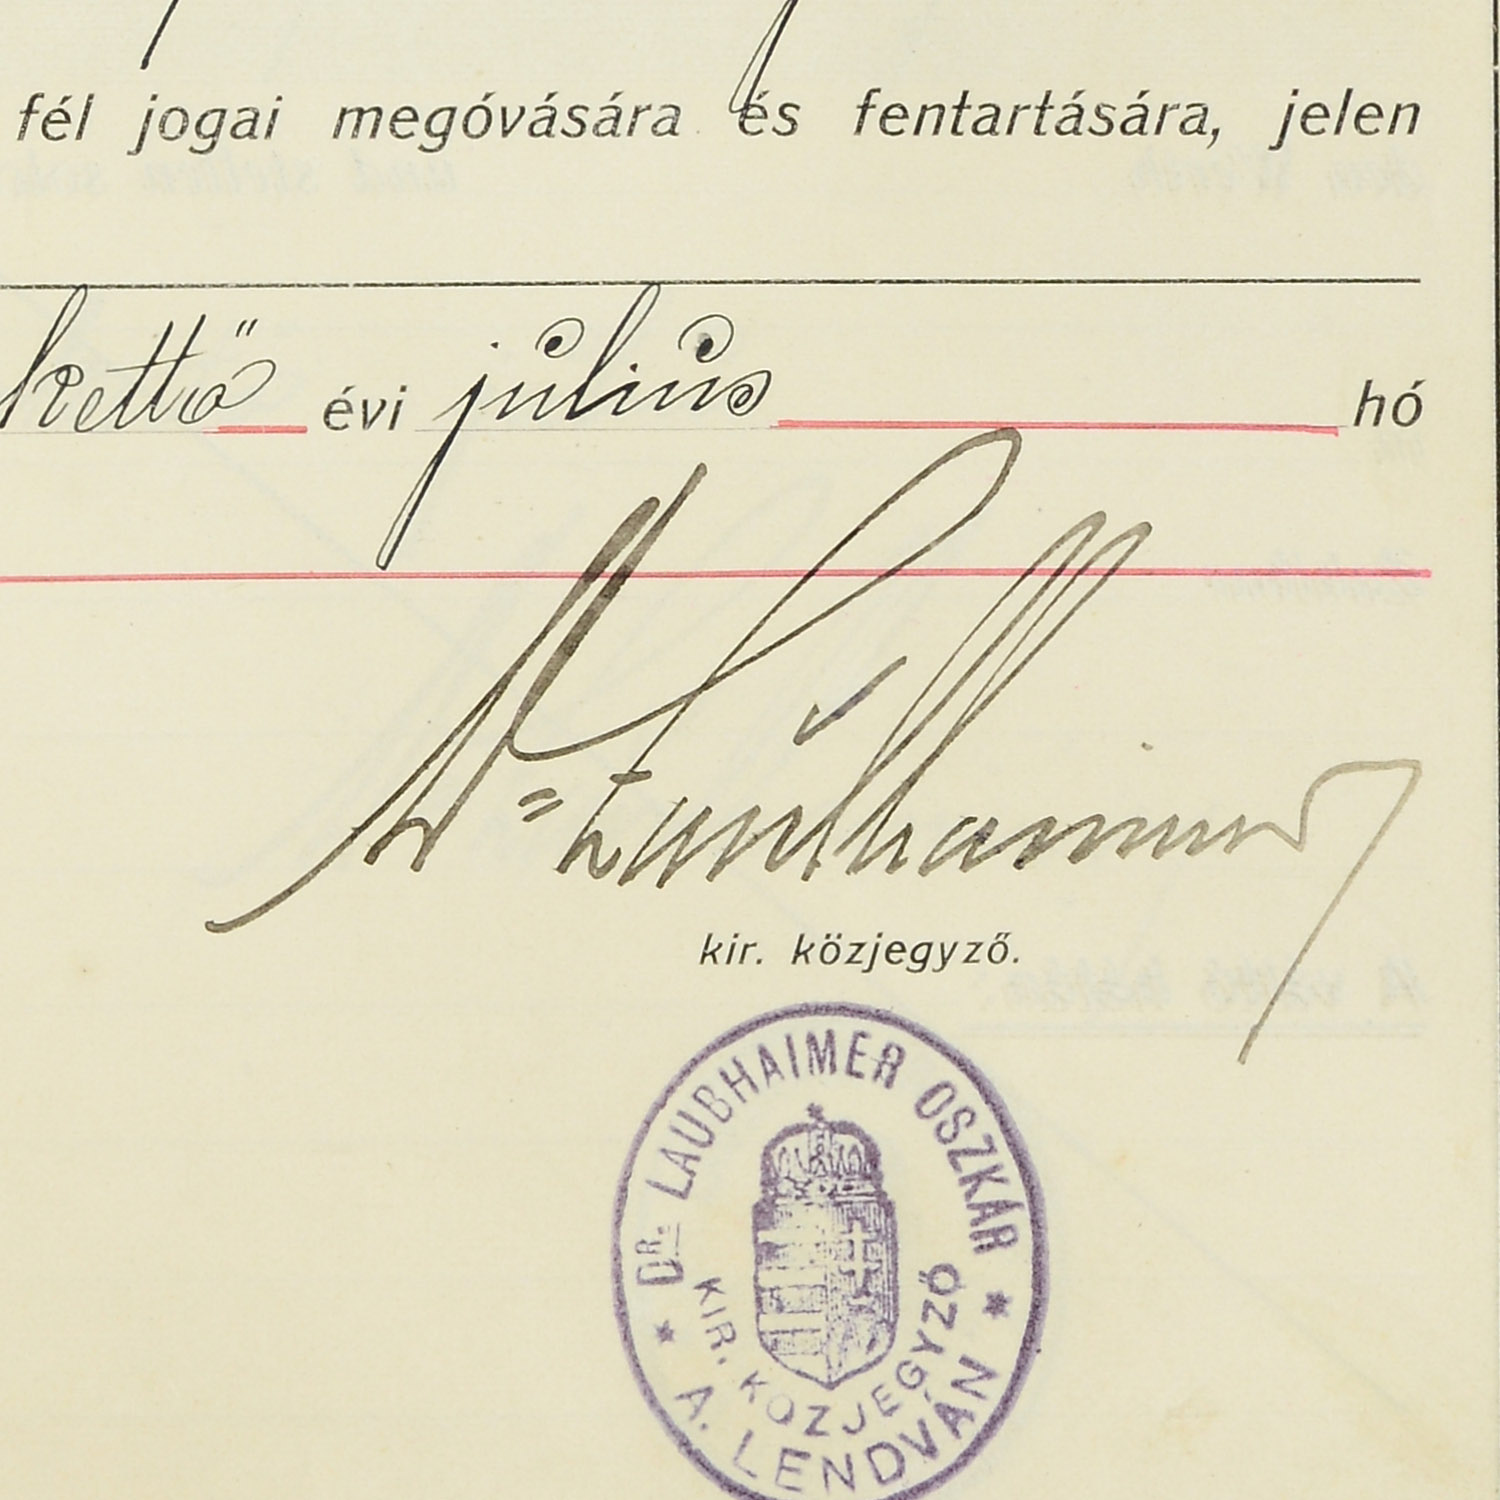 fél jogai megóvására és fentartására, jelen
kettő évi július hó
Dr Laubhaimer
kir. közjegyző.
* DR. LAUBHAIMER OSZKÁR *
KIR. KÖZJEGYZŐ
A. LENDVÁN